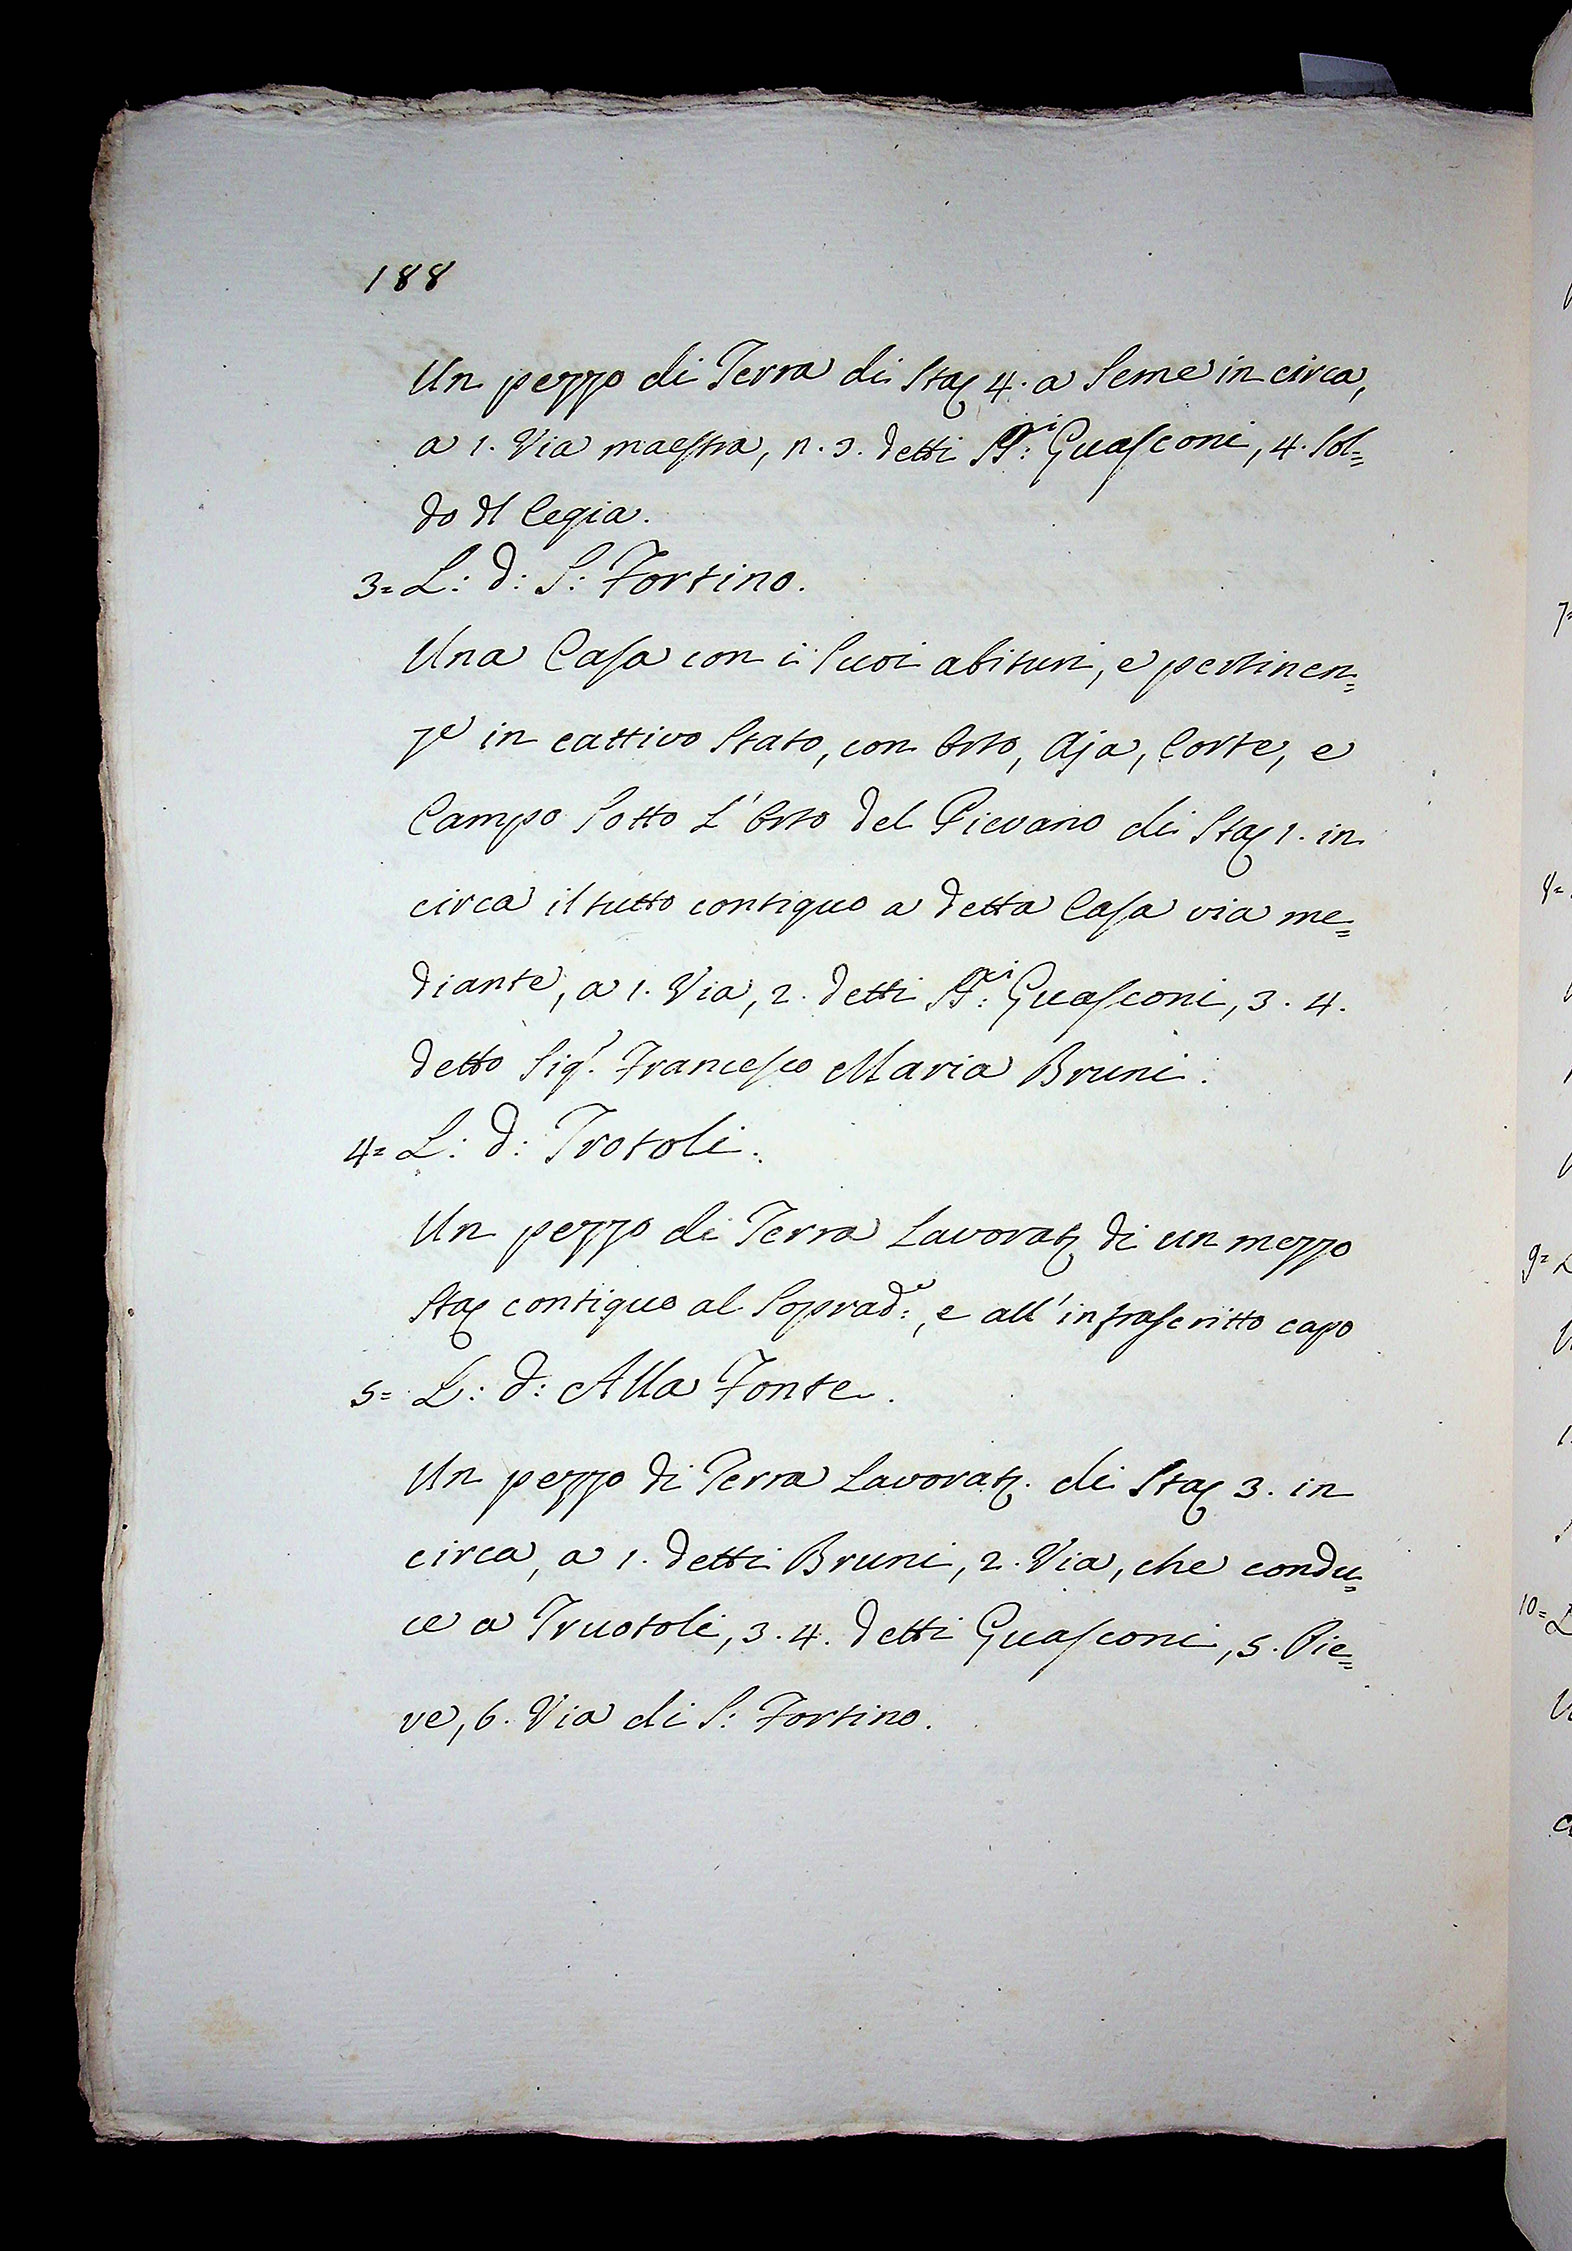 188
Un pezzo di Terra di Sta 4. a Seme in circa,
a 1. Via maestra, n. 3. detti SS:ri Guasconi, 4. Sol=
do dl Cegia.
3= L: d: S: Fortino.
Una Casa con i Suoi abituri, e pertinen=
ze in cattivo Stato, con Orto, Aja, Corte, e
Campo Sotto L'Orto del Pievano di Sta 1. in
circa il tutto contiguo a detta Casa via me=
diante, a 1. Via, 2. detti SS:ri Guasconi, 3. 4.
detto Sigr. Francesco Maria Bruni.
4= L: d: Trotoli.
Un pezzo di Terra Lavorat di un mezzo
Sta contiguo al Soprad:o, e all'infrascritto capo
5= L: d: Alla Fonte.
Un pezzo di Terra Lavorat. di Sta 3. in
circa, a 1. detti Bruni, 2. Via, che condu=
ce a Truotoli, 3. 4. detti Guasconi, 5. Pie=
ve, 6. Via di S: Fortino.
7=
8=
9=
10=